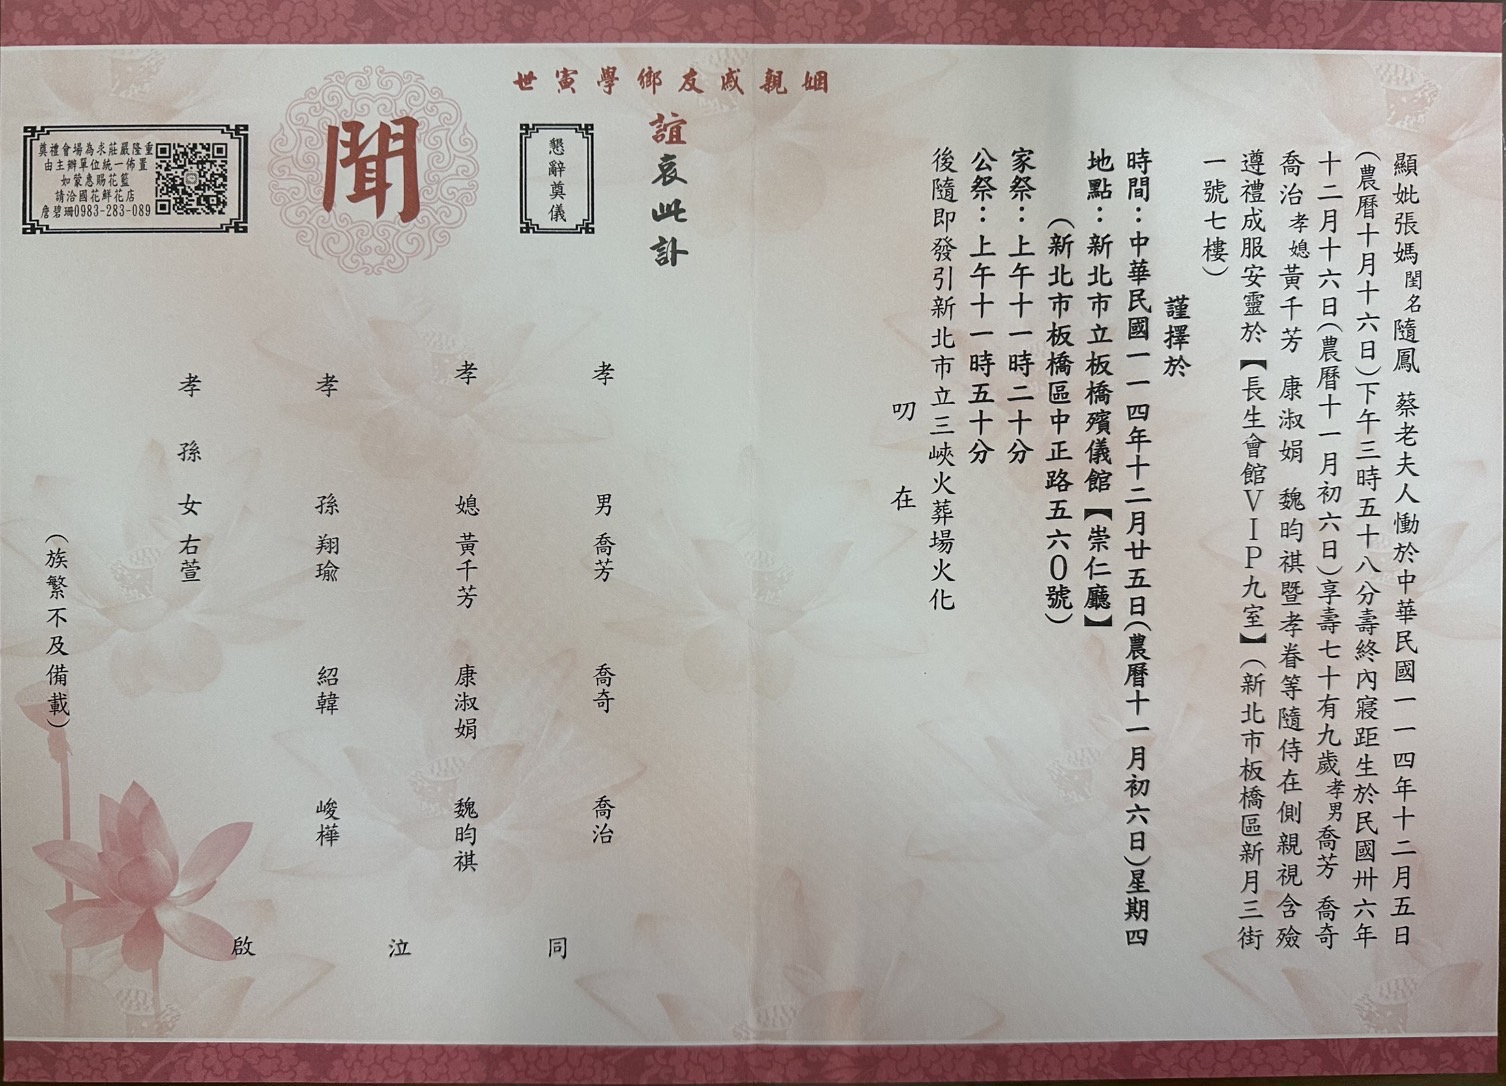 顯妣張媽閨名隨鳳 蔡老夫人慟於中華民國一一四年十二月五日
(農曆十月十六日)下午三時五十八分壽終內寢距生於民國卅六年
十二月十六日(農曆十一月初六日)享壽七十有九歲孝男喬芳 喬奇
喬治孝媳黃千芳 康淑娟 魏昀祺暨孝眷等隨侍在側親視含殮
遵禮成服安靈於【長生會館VIP九室】(新北市板橋區新月三街
一號七樓)
謹擇於
時間：中華民國一一四年十二月廿五日(農曆十一月初六日)星期四
地點：新北市立板橋殯儀館【崇仁廳】
(新北市板橋區中正路五六0號)
家祭：上午十一時二十分
公祭：上午十一時五十分
後隨即發引新北市立三峽火葬場火化
叨 在
姻親戚友鄉學寅世
誼哀此訃
懇辭奠儀
聞
奠禮會場為求莊嚴隆重
由主辦單位統一佈置
如蒙惠賜花籃
請洽國花鮮花店
詹碧珊0983-283-089
孝 男 喬芳 喬奇 喬治
孝 媳 黃千芳 康淑娟 魏昀祺
孝 孫 翔瑜 紹韓 峻樺
孝 孫 女 右萱
同 泣 啟
(族繁不及備載)